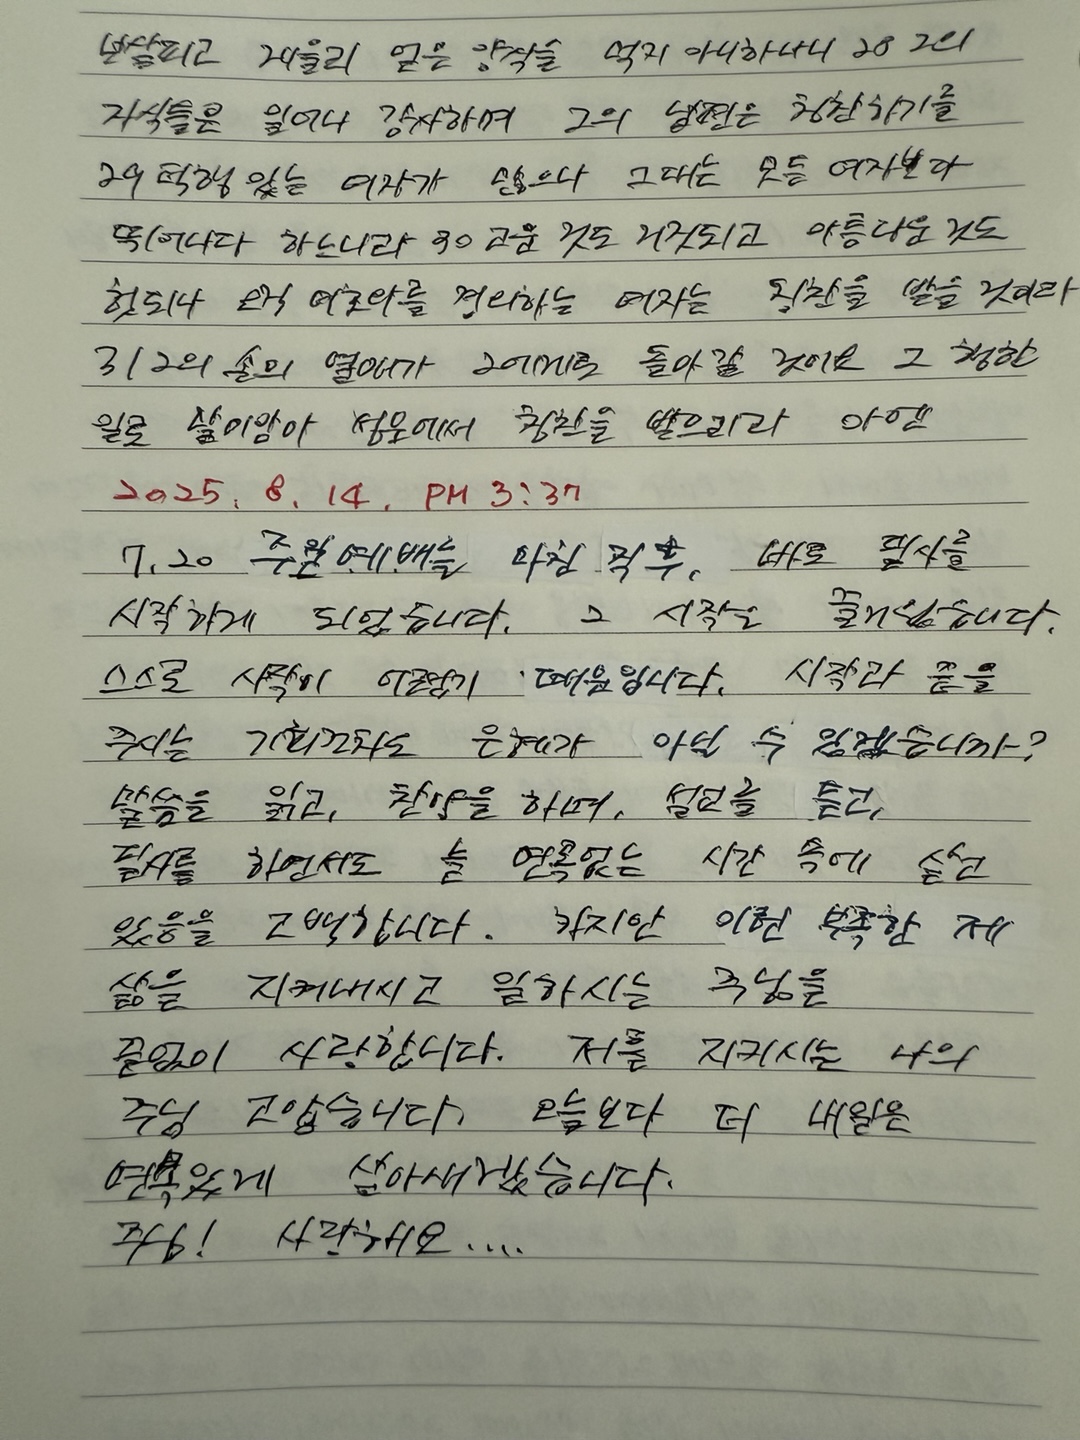 보살피고 게을리 얻은 양식을 먹지 아니하나니 28 그의
자식들은 일어나 감사하며 그의 남편은 칭찬하기를
29 덕행 있는 여자가 많으나 그대는 모든 여자보다
뛰어나다 하느니라 30 고운 것도 거짓되고 아름다운 것도
헛되나 오직 여호와를 경외하는 여자는 칭찬을 받을 것이라
31 그의 손의 열매가 그에게로 돌아갈 것이요 그 행한
일로 말미암아 성문에서 칭찬을 받으리라 아멘
2025. 8. 14. PM 3:37
7.20 주일예배를 마친 직후, 바로 필사를
시작하게 되었습니다. 그 시작은 즐거웠습니다.
스스로 시작이 어렵기 때문입니다. 시작과 끝을
주시는 기회조차도 은혜가 아닐 수 있겠습니까?
말씀을 읽고, 찬양을 하며, 설교를 듣고,
필사를 하면서도 늘 면목없는 시간 속에 살고
있음을 고백합니다. 하지만 이런 부족한 제
삶을 지켜내시고 일하시는 주님을
끝없이 사랑합니다. 저를 지키시는 나의
주님 고맙습니다. 오늘보다 더 내일은
면목있게 살아내겠습니다.
주님! 사랑해요....